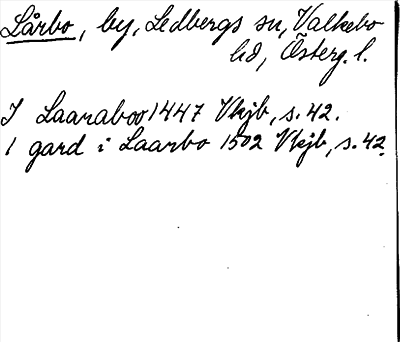 Lårbo, by, Ledbergs sn, Valkebo
hd, Österg. l.
I Laaraboo 1447 Vkjb, s. 42.
1 gard i Laarbo 1502 Vkjb, s. 42.